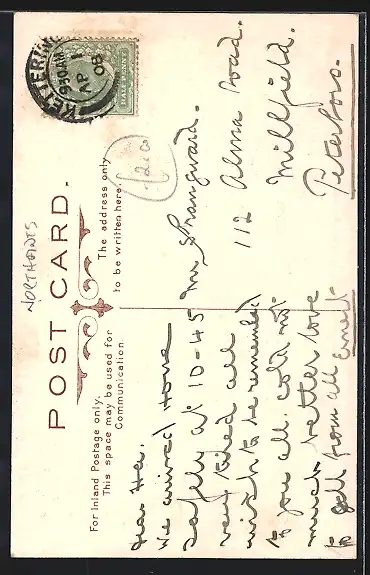 POST CARD.
For Inland Postage only.
This space may be used for
Communication.
The address only
to be written here.
NORTHANTS
KETTERING
9 30 AM
AP
08
HALFPENNY
Dear Her.
We arrived Home
safely at 10-45
very tired all
wish to be remembered
to you all. cold not
much better love
to all from all Ernest
Mr
112 Alma Road.
Millfield.
Peterboro.